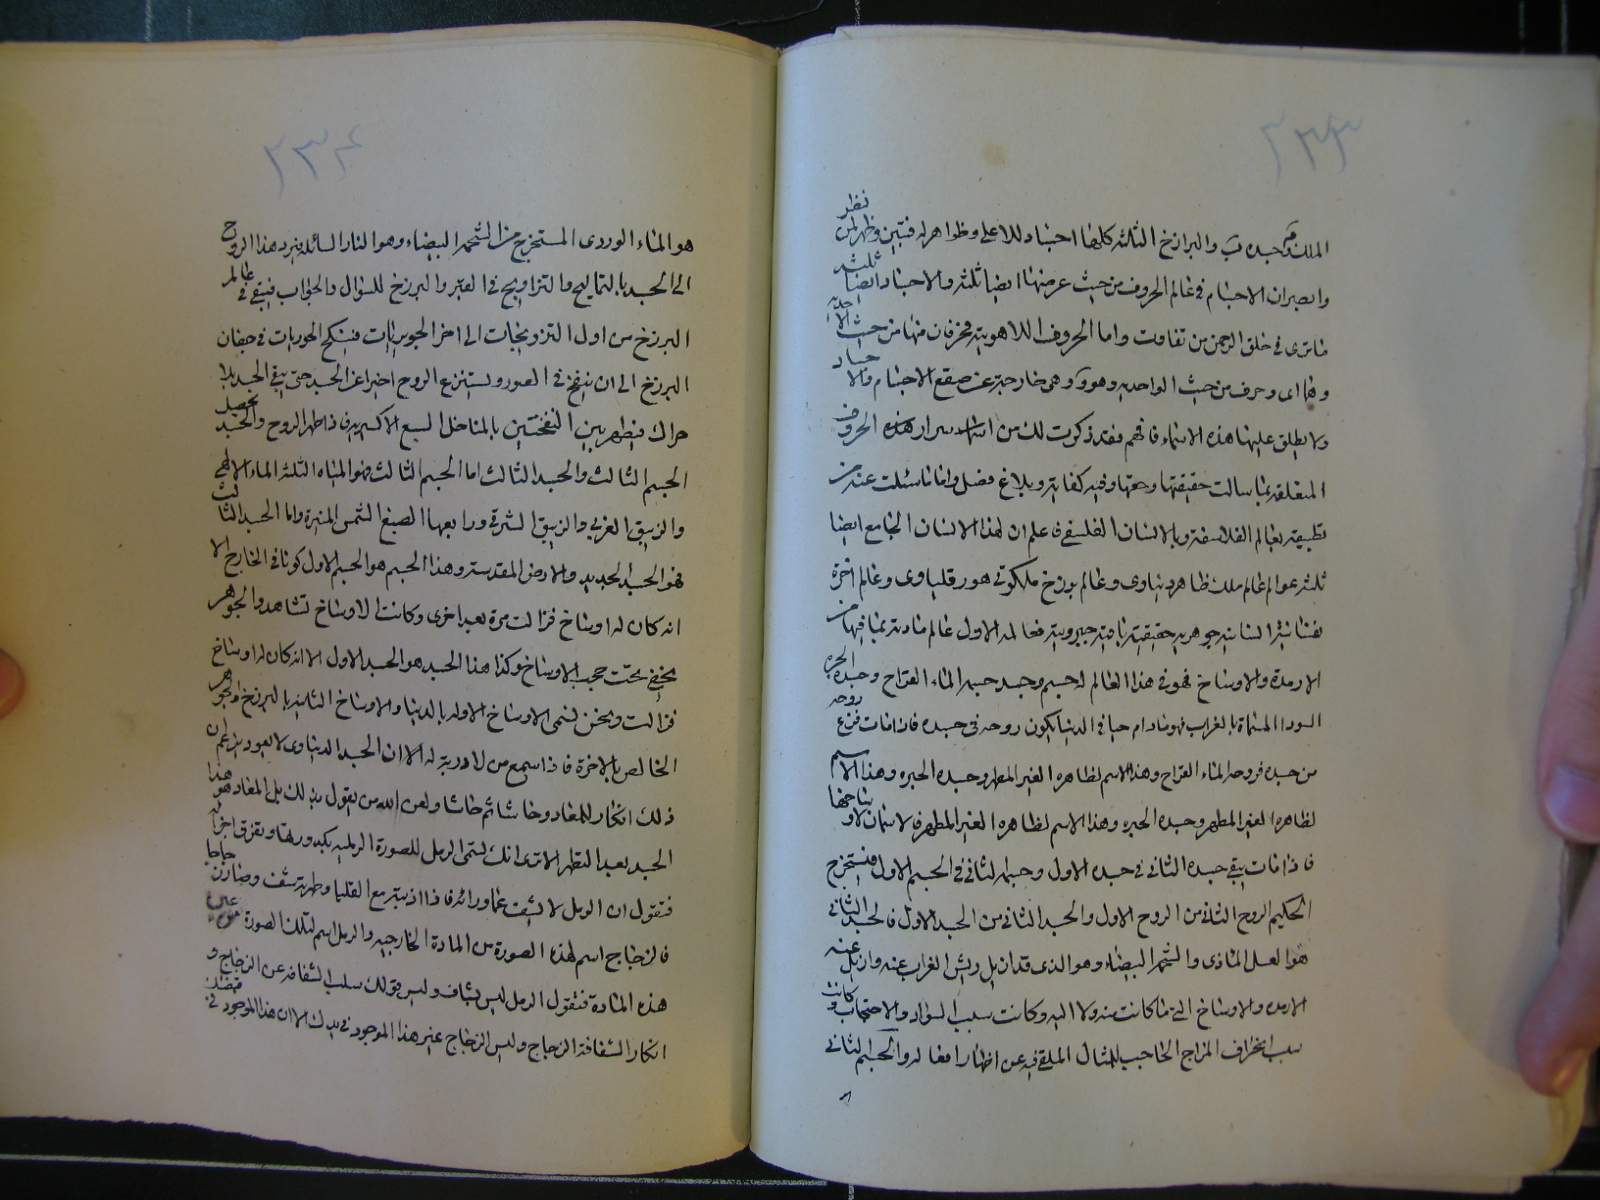 ٢٣٣
الملك وجسده ب والبرازخ الثلثه كلها اجساد للاعلى وظواهر له فتبين وظهر لمن نظر
وابصر ان الاجسام في عالم الحروف من حيث عرضها ايضا ثلثه والاجساد ايضا ثلثة
ما ترى في خلق الرحمن من تفاوت واما الحروف اللاهوتية فحرفان منها من حيث الاحديه
وهما اى وحرف من حيث الواحديه وهو و وهى خارجة عن صقع الاجسام والاجساد
ولا يطلق عليها هذه الاسماء فافهم فقد ذكرت لك من اسرار هذه الحروف
المتعلقه بما سالت حقيقتها وحقها وفيه كفاية وبلاغ فصل واما ما سئلت عنه من
تطبيقه بعالم الفلاسفة وبالانسان الفلسفى فاعلم ان لهذا الانسان الجامع ايضا
ثلثه عوالم عالم ملك ظاهر دنياوى وعالم برزخ ملكوتى هورقلياوى وعالم اخرة
نفسانية انسانيه جوهرية حقيقيه باقية جبروتية فعالمه الاول عالم مادته بما فيها من
الارمدة والاوساخ فهو في هذا العالم له جسم وجسد جسمه الماء القراح وجسده الحجرة
السودا المسماة بالغراب فهو مادام حيا في الدنيا يكون روحه في جسده فاذا مات فزع روحه
من جسده فروحه الماء القراح وهذا الاسم لظاهره الغير المطهر وجسده الحجره وهذا الاسم
لظاهره الغير المطهر وجسده الحجره وهذا الاسم لظاهره الغير المطهره لاسمان لاوساخها
فاذا مات يبقى جسده الثانى في جسده الاول وجسمه الثانى في الجسم الاول فيستخرج
الحكيم الروح الثانى من الروح الاول والجسد الثانى من الجسد الاول فالجسد الثانى
هو العسل الماذى والشحمة البيضاء وهو الذى قد ازيل ريش الغراب عنه وازيل عنه
الارمده والاوساخ التى ما كانت منه ولا اليه وكانت سبب السواد والاحتجاب وكانت
سبب انحراف المزاج الحاجب للمثال الملقى فيه عن اظهار افعاله والجسم الثانى
٢٣٤
هو الماء الوردى المستخرج من الشحمة البيضاء وهو النار السائله فيرد هذا الروح
الى الجسد بالتماليح والتزاويج في القبر والبرزخ للسؤال والجواب فيبقى في عالم
البرزخ من اول التزويجات الى اخر الجوبريات فينكح الحوريات في جفان
البرزخ الى ان ينفخ في الصور ويستنزع الروح اخيرا عن الجسد حتى يبقى الجسد بلا
حراك فيطهر بين النفختين بالمناخل السبع الاكسيريه فاذا طهر الروح والجسد يحصل
الجسم الثالث والجسد الثالث اما الجسم الثالث فهو المياه الثلثه الماء الالهى
والزيبق الغربى والزيبق الشرقى ورابعها الصبغ الشمس المنيرة واما الجسد الثالث
فهو الجسد الجديد والارض المقدسة وهذا الجسم هو الجسم الاول كونا في الخارج الا
انه كان له اوساخ فزالت مرة بعد اخرى وكانت الاوساخ تشاهد والجوهر
يخفى تحت حجب الاوساخ وكذا هذا الجسد هو الجسد الاول الا انه كان له اوساخ
فزالت ونحن نسمى الاوساخ الاوله بالدنيا والاوساخ الثانيه بالبرزخ والجوهر
الخالص بالاخرة فاذا سمع من لا دربة له الا ان الجسد الدنياوى لا يعود يزعم ان
ذلك انكار للمعاد وحاشا ثم حاشا ولعن الله من يقول بذلك بل المعاد هو هذا
الجسد بعد التطهر الا ترى انك تسمى الرمل للصورة الرمليه بكدورتها وتفرق اجزائه
فتقول ان الرمل لا يشف عما ورائه فاذا اذبته مع القليا وطهرته شف وصار زجاجا
فالزجاج اسم لهذه الصورة من المادة الخارجيه والرمل اسم لتلك الصورة من عين
هذه المادة فتقول الرمل ليس بشاف وليس قولك سلب الشفافه عن الزجاج و
انكار الشفافة الزجاج وليس الزجاج غير هذا الموجود في يدك الا ان هذا الموجود في قبضتك